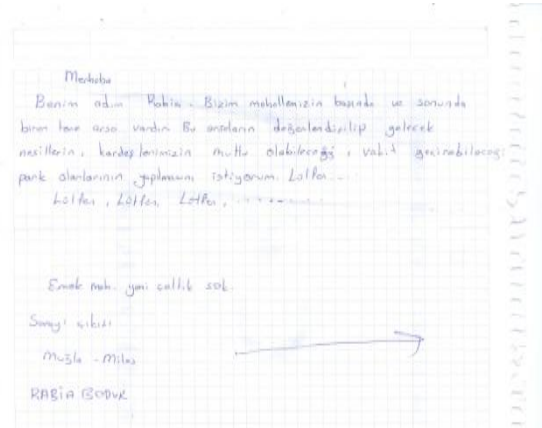 Merhaba
Benim adım Rabia. Bizim mahallemizin başında ve sonunda
birer tane arsa vardır. Bu arsaların değerlendirilip gelecek
nesillerin, kardeşlerimizin mutlu olabileceği, vakit geçirebileceği
park alanlarının yapılmasını istiyorum. Lütfen...
Lütfen, Lütfen, Lütfen, .......
Emek mah. yeni çallık sok.
Sanayi çıkışı
Muğla - Milas
RABİA BODUR